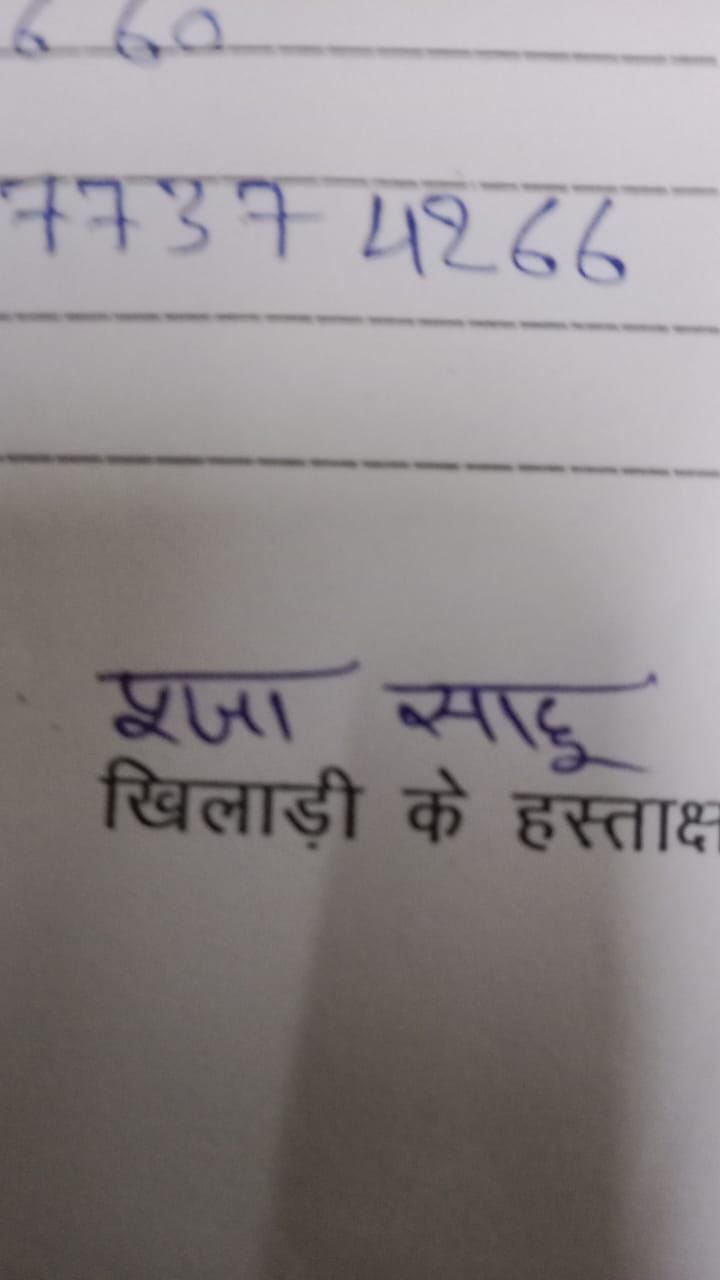 6 60
7737 4266
पूजा साहू
खिलाड़ी के हस्ताक्ष